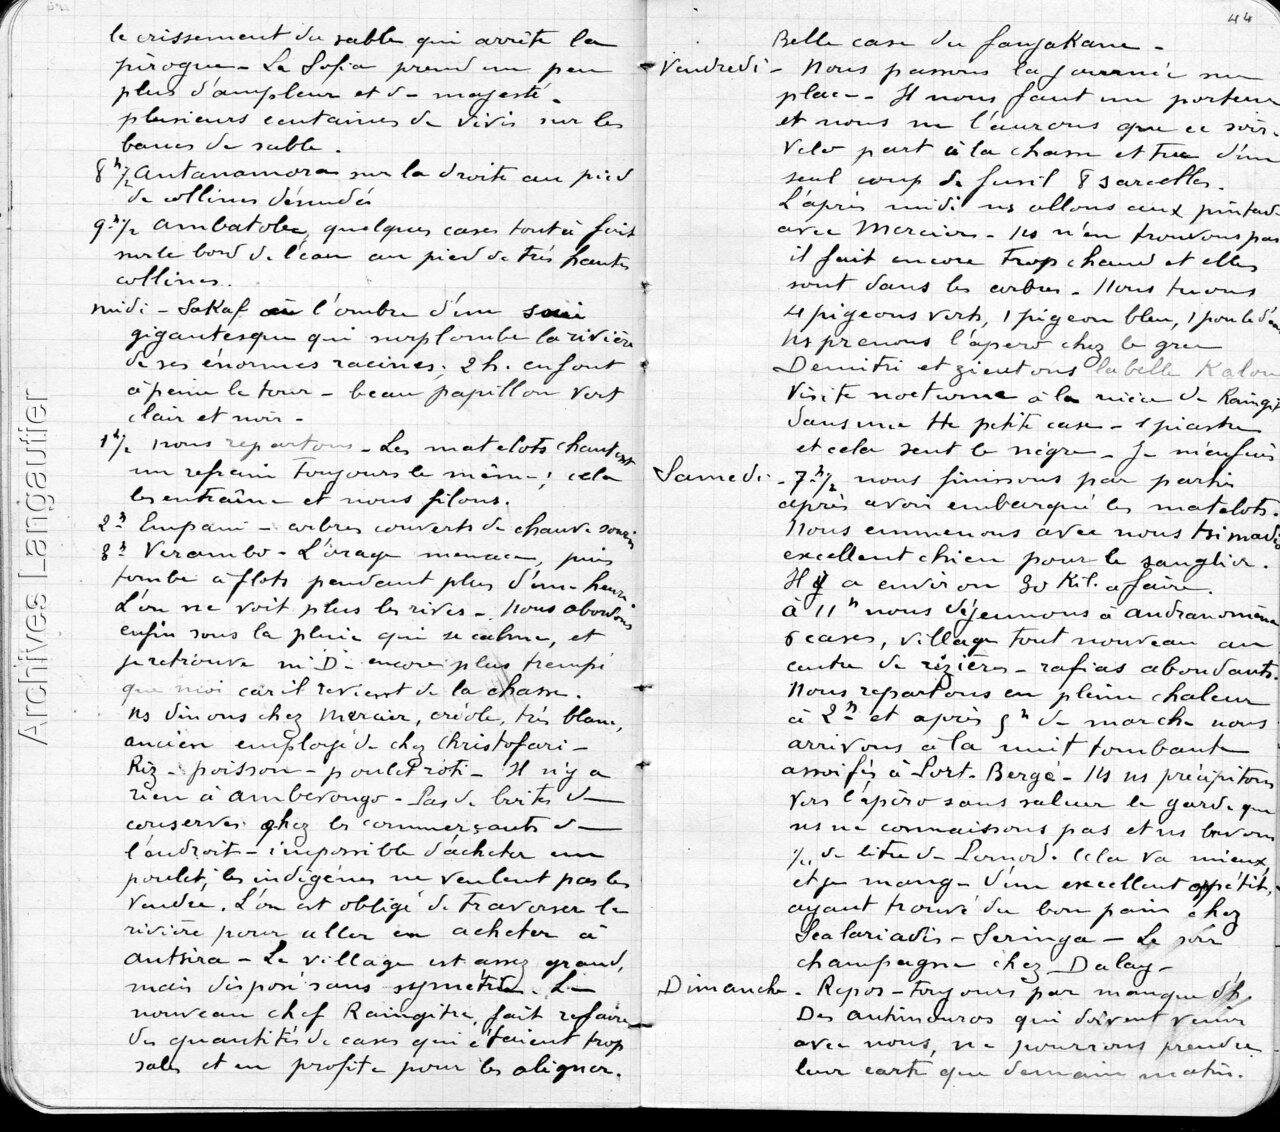 le crissement du sable qui arrête la
pirogue - La Sofia prend un peu
plus d'ampleur et de majesté.
plusieurs centaines de vivis sur les
bancs de sable.
8h ½ Antanamora sur la droite au pied
de collines dénudés
9h ½ Ambatobe, quelques cases tout à fait
sur le bord de l'eau au pied de très hautes
collines.
midi - Sakaf à l'ombre d'un
gigantesque qui surplombe la rivière
de ses énormes racines; 2 h. en font
à peine le tour - beau papillon vert
clair et noir -
1h ½ nous repartons - Les matelots chantent
un refrain toujours le même; cela
les entraîne et nous filons.
2h Empani - arbres couverts de chauve souris
3h Verambo - L'orage menace, puis
tombe à flots pendant plus d'une heure
L'on ne voit plus les rives - Nous abordons
enfin sous la pluie qui se calme, et
je retrouve m' D - encore plus trempé
que moi car il revient de la chasse.
Ns dinons chez Mercier, créole, très blanc,
ancien employé de chez Christofari -
Riz - poisson - poulet roti - Il n'y a
rien à Amberongo - Pas de boites de
conserves chez les commerçants de
l'endroit - impossible d'acheter un
poulet, les indigènes ne veulent pas les
vendre. L'on est obligé de traverser la
rivière pour aller en acheter à
Antsira - Le village est assez grand,
mais disposé sans symétrie - Le
nouveau chef Raingitra, fait refaire
des quantités de cases qui étaient trop
sales et en profite pour les aligner.
44
Belle case du fanjakana -
Vendredi - Nous passons la journée sur
place - Il nous faut un porteur
et nous ne l'aurons que ce soir.
Velo part à la chasse et tue d'un
seul coup de fusil 8 sarcelles.
L'après midi ns allons aux pintad
avec Mercier - Ns n'en trouvons pas
il fait encore trop chaud et elles
sont dans les arbres - Nous tuons
4 pigeons verts, 1 pigeon bleu, 1 poule d'eau
Ns prenons l'apéro chez le grec
Demitri et zieutons la belle Kalou
Visite nocturne à la nièce de Raingit
dans une tte petite case - 1 piastre
et cela sent le nègre - Je m'enfuis
Samedi - 7h ½ nous finissons par partir
après avoir embarqué les matelots.
Nous emmenons avec nous
excellent chien pour le sanglier.
Il y a environ 30 Kil. à faire.
à 11h nous déjeunons à Andranomena
6 cases, village tout nouveau au
centre de rizières - rafias abondants.
Nous repartons en pleine chaleur
à 2h et après 5h de marche nous
arrivons à la nuit tombante
assoifés à Port-Bergé - Ns ns précipitons
vers l'apéro sans saluer le garde que
ns ne connaissons pas et ns buvons
de litre de Pernod. Cela va mieux,
et je mange d'un excellent appétit,
ayant trouvé du bon pain chez
Scalariadis - Seringa - Le soir
champagne chez Dalay -
Dimanche - Repos - toujours par manque d'h,
Des antimouros qui doivent venir
avec nous, ne pourrons prendre
leur carte que demain matin.
Archives Langautier